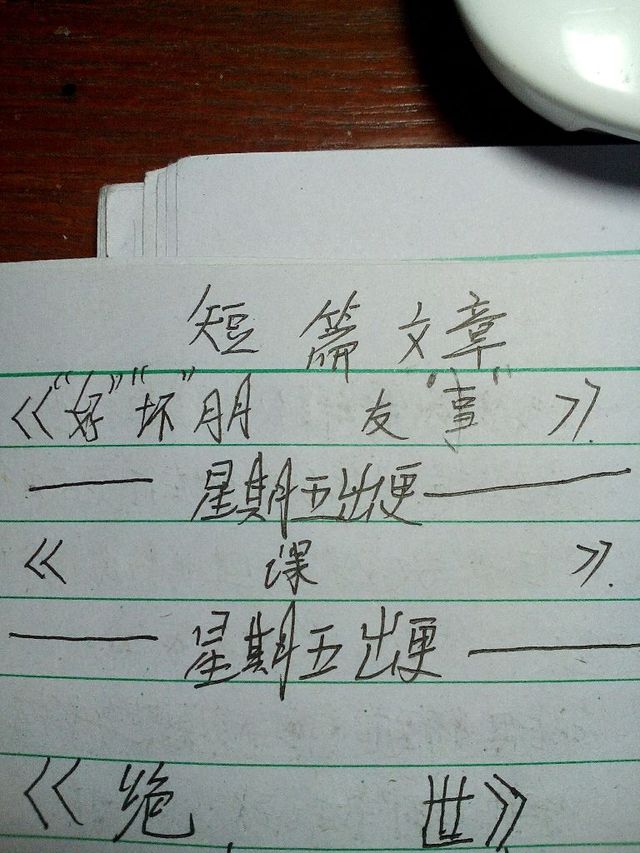 短篇文章
《“好”“坏”朋友“事”》
——星期五出更——
《课》
——星期五出更——
《绝世》